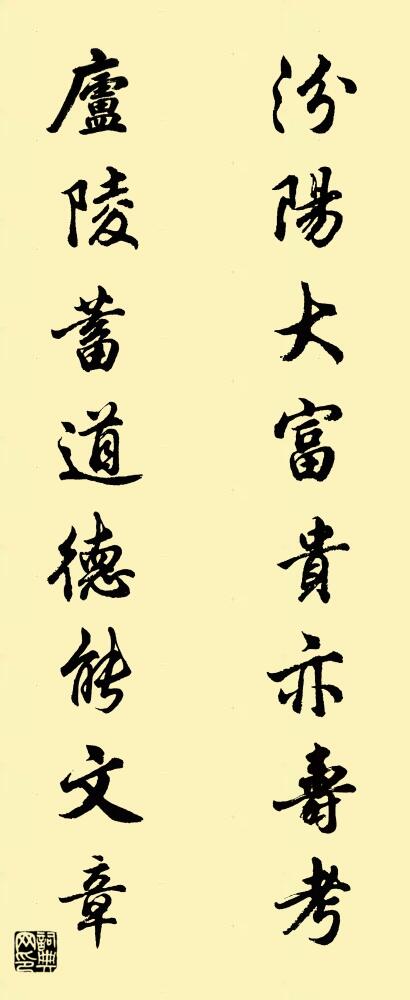 汾陽大富貴亦壽考
廬陵蓄道德能文章
詞典網印